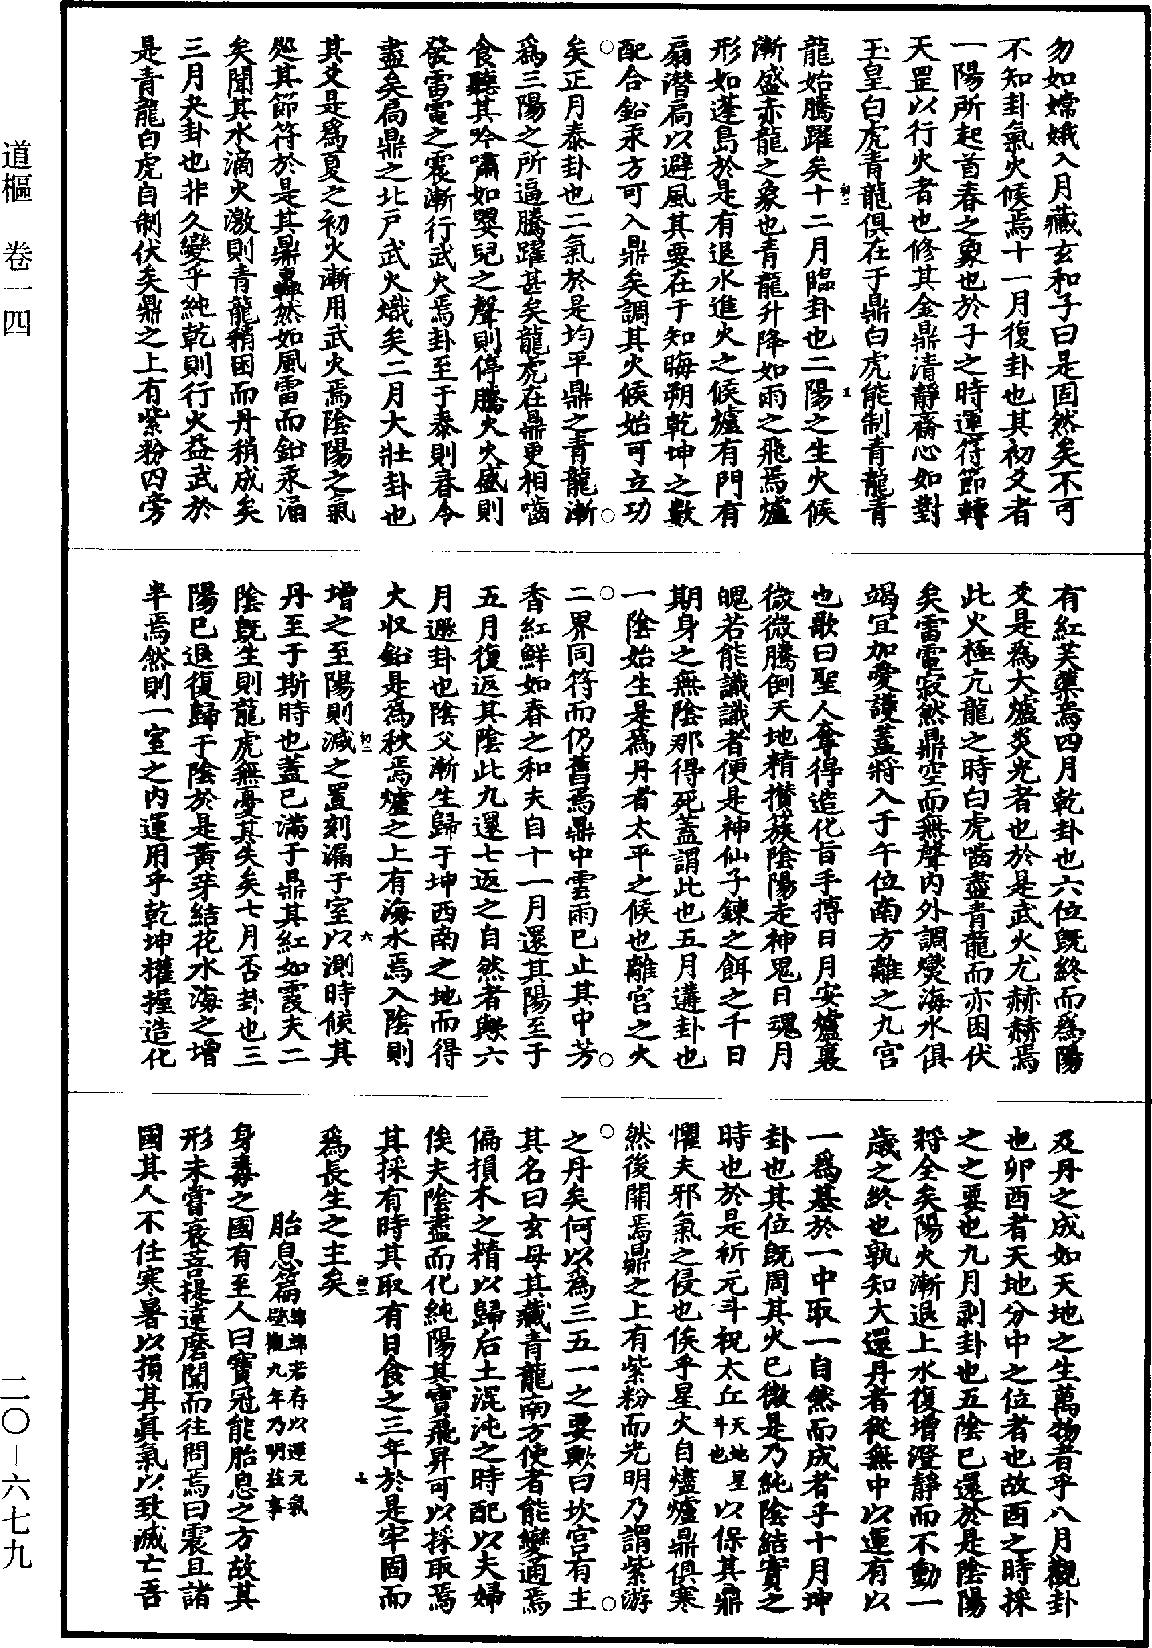 勿如嫦娥入月藏玄和子曰是固然矣不可
不知卦氣火候焉十一月復卦也其初爻者
一陽所起首春之象也於子之時運符節轉
天罡以行火者也修其金鼎清靜齋心如對
玉皇白虎青龍俱在于鼎白虎能制青龍青
龍始騰躍矣十二月臨卦也二陽之生火候
漸盛赤龍之象也青龍升降如雨之飛焉爐
形如蓬島於是有退水進火之候爐有門有
扇潛扃以避風其要在于知晦朔乾坤之數
配合鉛汞方可入鼎矣調其火候始可立功
矣正月泰卦也二氣於是均平鼎之青龍漸
為三陽之所逼騰躍甚矣龍虎在鼎更相齧
食聽其吟嘯如嬰兒之聲則停騰火火盛則
發雷電之震漸行武火焉卦至于泰則春令
盡矣扃鼎之北戶武火熾矣二月大壯卦也
其爻是為夏之初火漸用武火焉陰陽之氣
處其節符於是其鼎轟然如風雷而鉛汞涌
矣聞其水滴火激則青龍稍困而丹稍成矣
三月夬卦也非久變乎純乾則行火益武於
是青龍白虎自制伏矣鼎之上有紫粉四旁
有紅芙蕖焉四月乾卦也六位既終而為陽
爻是為大爐炎光者也於是武火尤赫赫焉
此火極亢龍之時白虎嚙盡青龍而亦困伏
矣雷電寂然鼎空而無聲內外調燮海水俱
竭宜加愛護蓋將入于午位南方離之九宮
也歌曰聖人奪得造化旨手搏日月安爐裏
微微騰倒天地精攢簇陰陽走神鬼日魂月
魄若能識識者便是神仙子鍊之餌之千日
期身之無陰那得死蓋謂此也五月遘卦也
一陰始生是為丹者太平之候也離宮之火
二界同符而仍舊焉鼎中雲雨已止其中芳
香紅鮮如春之和夫自十一月還其陽至于
五月復返其陰此九還七返之自然者與六
月遯卦也陰父漸生歸于坤西南之地而得
火収鉛是為秋焉爐之上有海水焉入陰則
增之至陽則減之置刻漏于室以測時候其
丹至于斯時也蓋已滿于鼎其紅如霞夫二
陰既生則龍虎無憂其失矣七月否卦也三
陽已退復歸于陰於是黃芽結花水海之增
半焉然則一室之內運用乎乾坤權握造化
及丹之成如天地之生萬物者乎八月觀卦
也卯酉者天地分中之位者也故酉之時採
之之要也九月剥卦也五陰已還於是陰陽
將全矣陽火漸退上水復增澄靜而不動一
歲之終也孰知大還丹者從無中以運有以
一為基於一中取一自然而成者乎十月坤
卦也其位既周其火已微是乃純陰結實之
時也於是祈元斗祝太丘天地星斗也以保其鼎
懼夫邪氣之侵也俟乎星火自燼爐鼎俱寒
然後開焉鼎之上有紫粉而光明乃謂紫游
之丹矣何以為三五一之要歟曰坎宮有主
其名曰玄母其藏青龍南方使者能變通焉
偏損木之精以歸后土混沌之時配以夫婦
俟夫陰盡而化純陽其寶飛昇可以採取焉
其採有時其取有日食之三年於是牢固而
為長生之主矣
胎息篇綿綿若存以運元氣壁觀九年乃明玆事
身毒之國有至人曰寶冠能胎息之方故其
形未嘗衰菩提達麼聞而往問焉曰震旦諸
國其人不任寒暑以損其真氣以致滅亡吾
道樞 卷一四
二〇-六七九